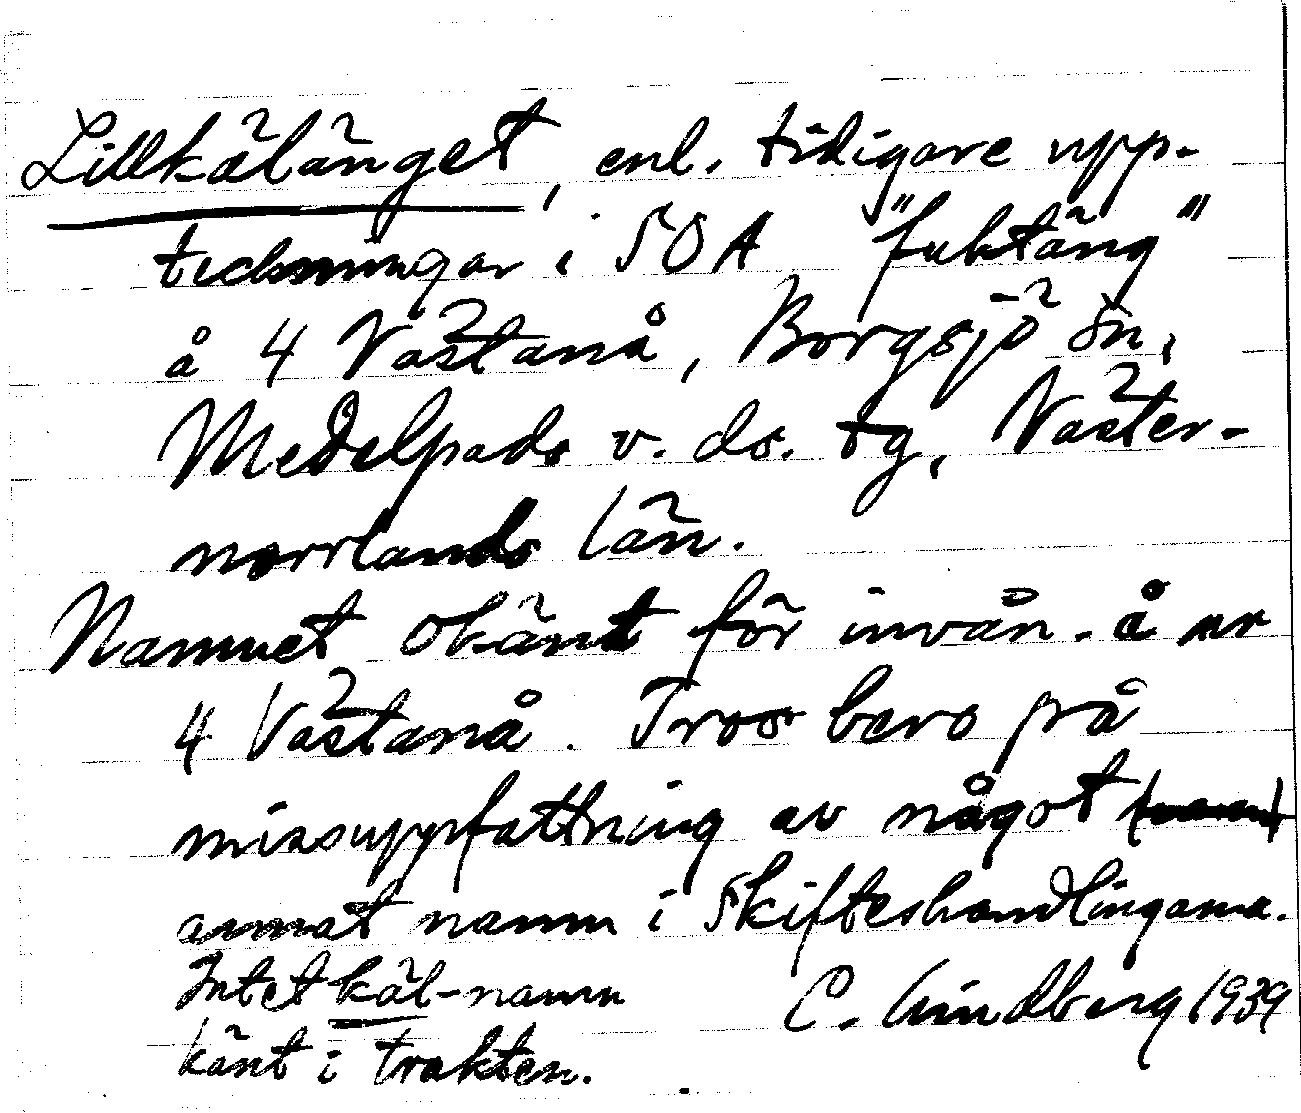 Lillkälänget, enl. tidigare upp-
teckningar i SOA "fuktäng"
å 4 Västanå, Borgsjö sn,
Medelpads v. ds. tg, Väster-
norrlands län.
Namnet okänt för invån. å nr
4 Västanå. Tros bero på
missuppfattning av något
annat namn i skifteshandlingarna.
Intet käl-namn C. Lindberg 1939
känt i trakten.